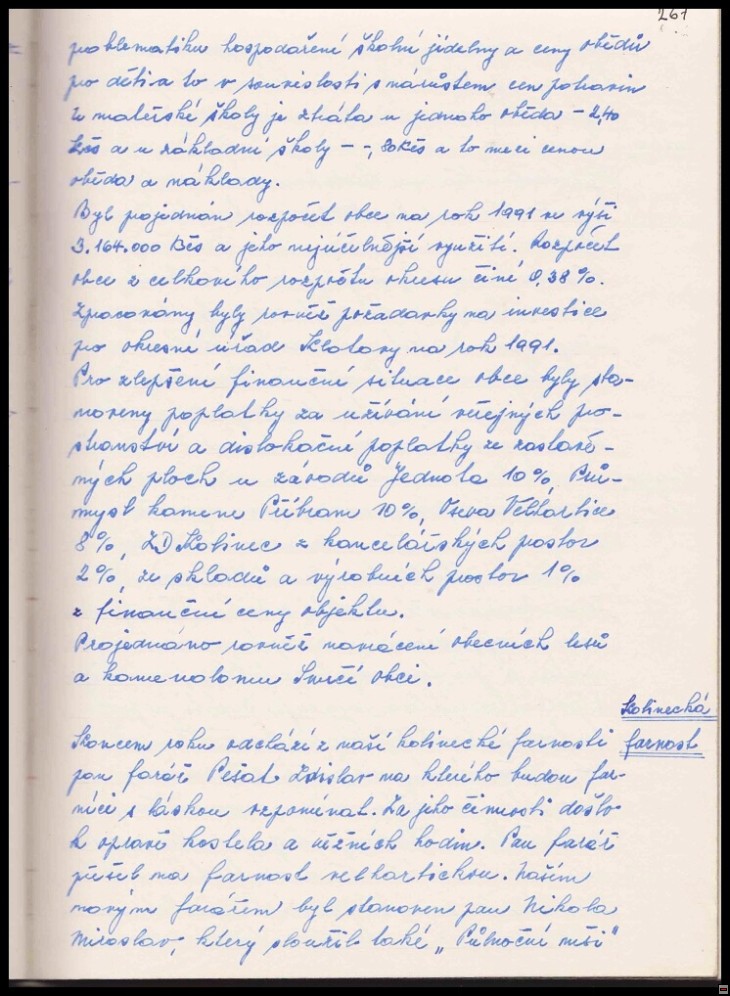 261
problematiku hospodaření školní jídelny a ceny obědů
pro děti a to v souvislosti s nárůstem cen potravin
U mateřské školy je ztráta u jednoho oběda – 2,40
Kčs a u základní školy – -,80 Kčs a to mezi cenou
oběda a náklady.
Byl projednán rozpočet obce na rok 1991 ve výši
3.164.000 Kčs a jeho nejúčelnější využití. Rozpočet
obce z celkového rozpočtu okresu činí 0,38 %.
Zpracovány byly rovněž požadavky na investice
pro okresní úřad Klatovy na rok 1991.
Pro zlepšení finanční situace obce byly sta-
noveny poplatky za užívání veřejných pro-
stranství a dislokační poplatky ze zastavě-
ných ploch u závodů Jednota 10%, Prů-
mysl kamene Příbram 10%, Oseva Velhartice
8%, ZD Kolinec z kancelářských prostor
2%, ze skladů a výrobních prostor 1%
z finanční ceny objektu.
Projednáno rovněž navrácení obecních lesů
a kamenolomu Smrčí obci.
Kolinecká
farnost
Koncem roku odchází z naší kolinecké farnosti
pan farář Pešat Zdislav na kterého budou far-
níci s láskou vzpomínat. Za jeho činnosti došlo
k opravě kostela a věžních hodin. Pan farář
přešel na farnost velhartickou. Naším
novým farářem byl stanoven pan Nikola
Miroslav, který sloužil také „Půlnoční mši"